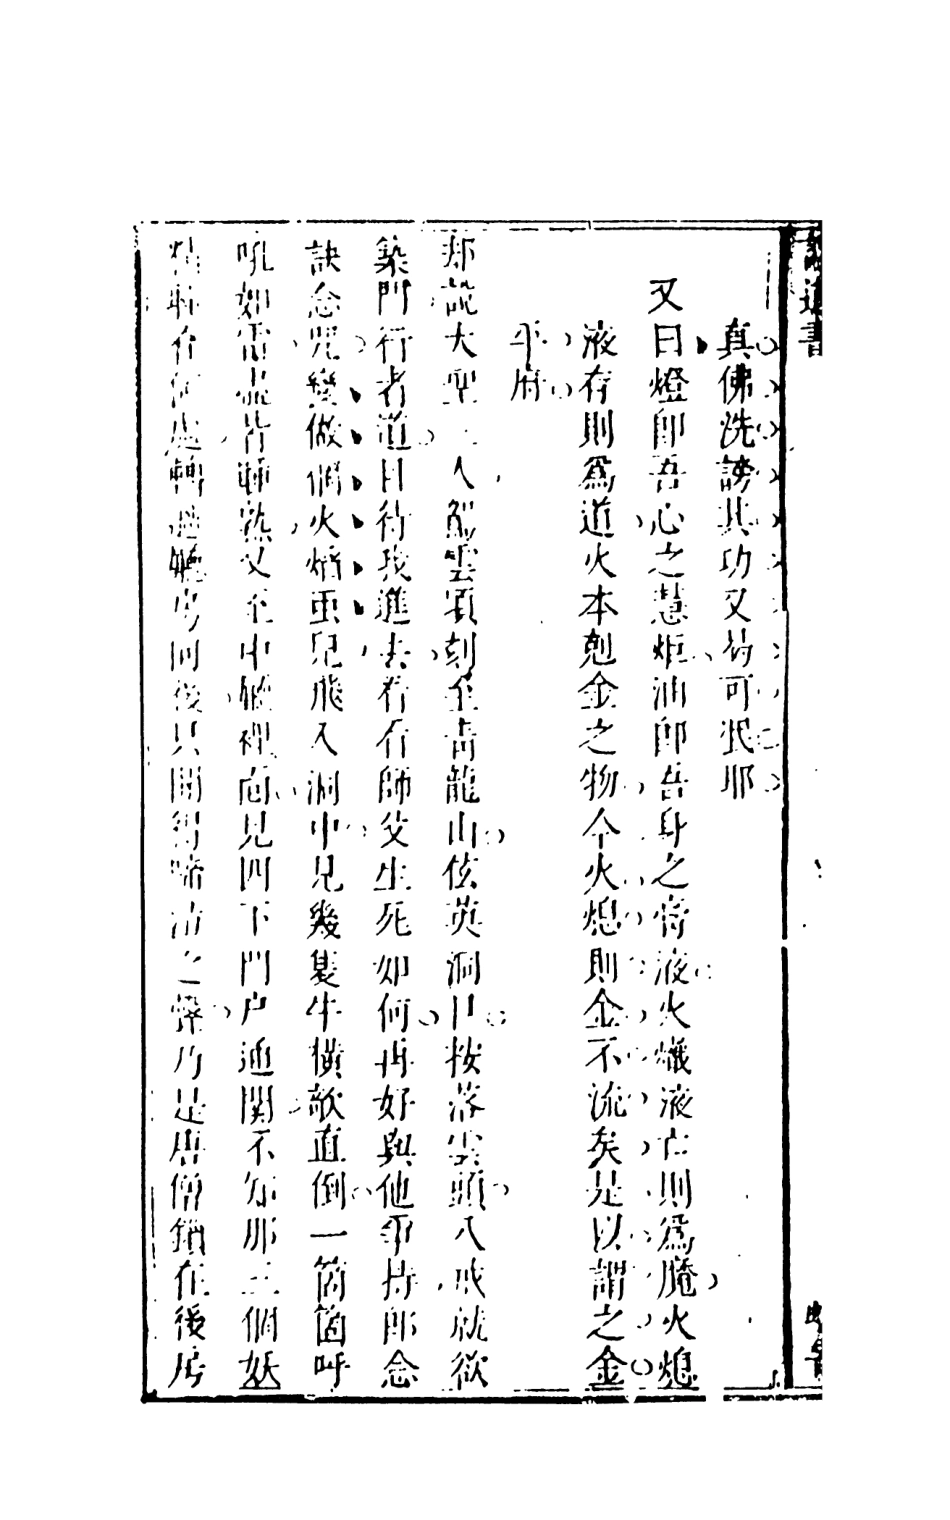 證道書
真佛洗謗其功又曷可泯耶
又曰燈即吾心之慧炬油即吾身之膏液火熾液亡則爲魔火熄
液存則爲道火本剋金之物今火熄則金不流矣是以謂之金
平府
却說大聖三人觸雲頃刻至青龍山伭英洞口按落雲頭八戒就欲
築門行者道且待我進去看看師父生死如何再好與他爭持即念
訣念咒變做個火焰虫兒飛入洞中見幾隻牛橫欹直倒一箇箇呼
吼如雷盡皆睡熟又至中廳裡面見四下門戶通関不知那三個妖
精睡在何處轉過廳房向後只聞得啼泣之聲乃是唐僧鎖在後房